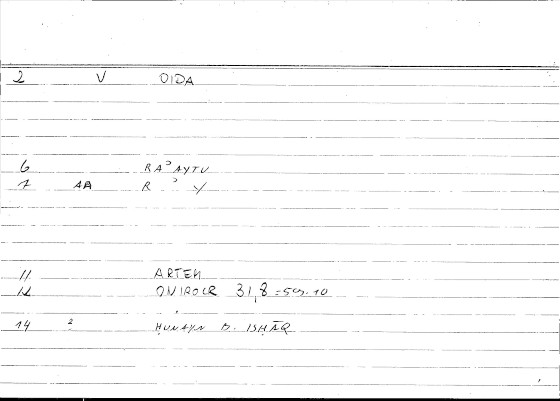 2 V OIDA
6 RAʾAYTU
7 AA R ʾ Y
11 ARTEM
12 ONIROCR 31,8 = 59.10
14 2 ḤUNAYN B. ISḤĀQ